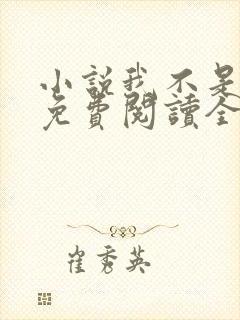 小說我不是
免費閱讀全
崔秀英